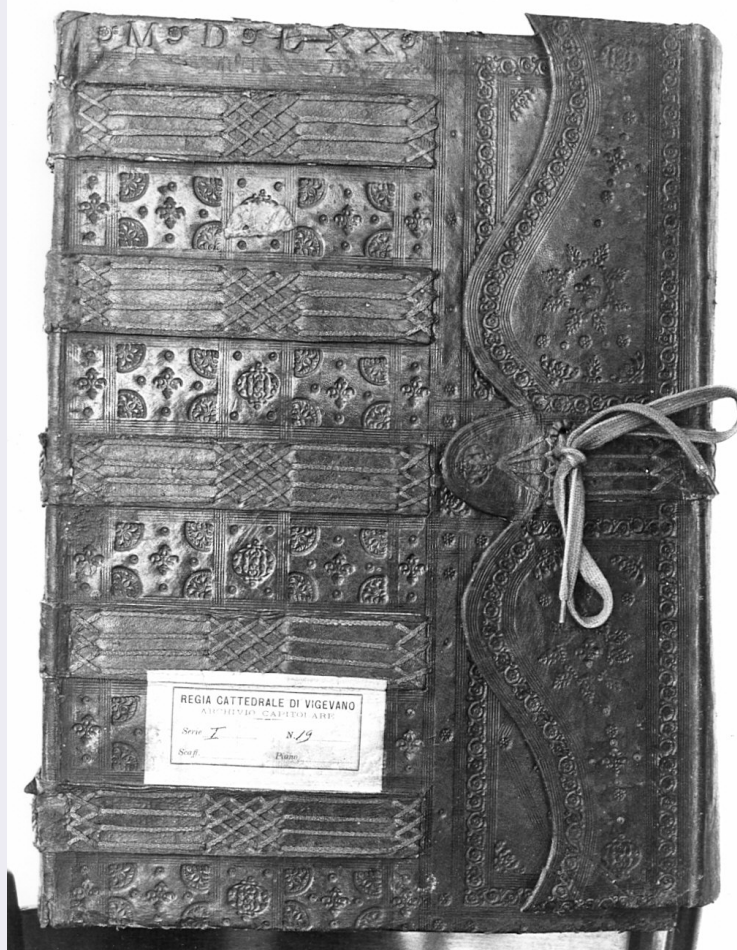 M D L X X
REGIA CATTEDRALE DI VIGEVANO
ARCHIVIO CAPITOLARE
Serie I N. 19
Scaff. Piano